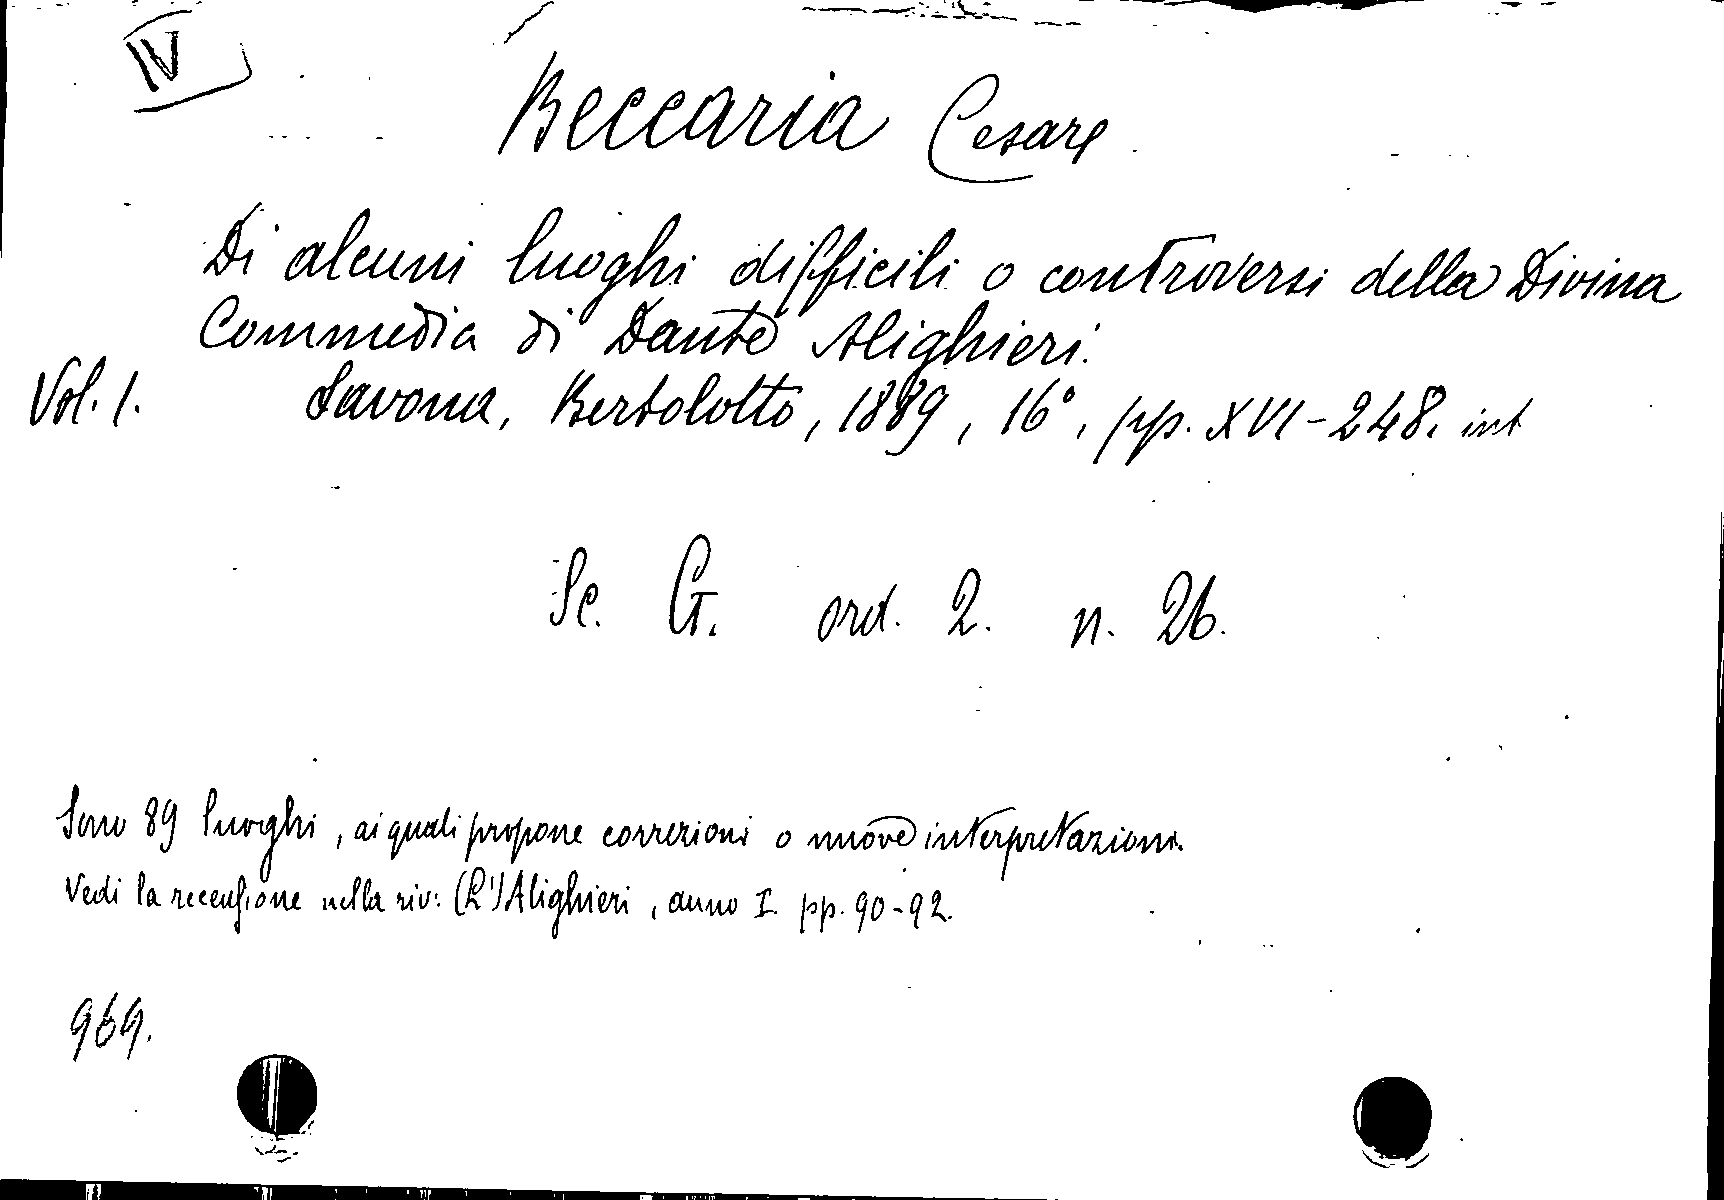 IV
Beccaria Cesare
Di alcuni luoghi difficili o controversi della Divina
Commedia di Dante Alighieri.
Vol. 1. Savona, Bertolotto, 1889, 16°, pp. XVI-248. int
Sc. G. ord. 2. n. 26.
Sono 89 luoghi, ai quali propone correzioni o nuove interpretazioni.
Vedi la recensione nella riv: (L')Alighieri, anno I. pp. 90-92.
969.